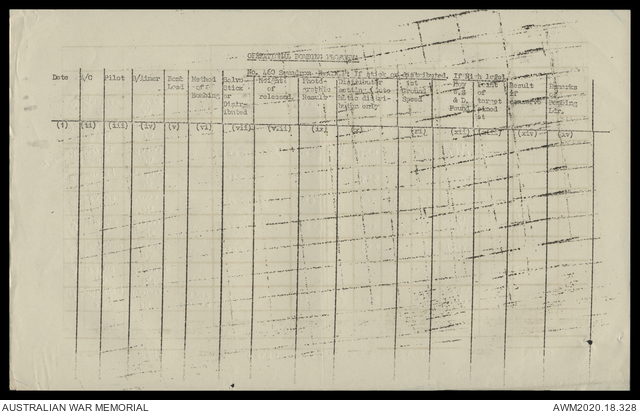 OPERATIONAL BOMBING
No. 460 Squadron. If stick or distributed. If High level
Date
A/C
Pilot
B/Aimer
Bomb Load
Method of Bombing
Salvo Stick or Distributed
Height of release
Photographic Result
Distributor setting
distribution only
Ground Speed
Found
Point of target aimed at
Result
Remarks
(i) (ii) (iii) (iv) (v) (vi) (vii) (viii) (ix) (x) (xi) (xii) (xiv) (xv)
AUSTRALIAN WAR MEMORIAL
AWM2020.18.328